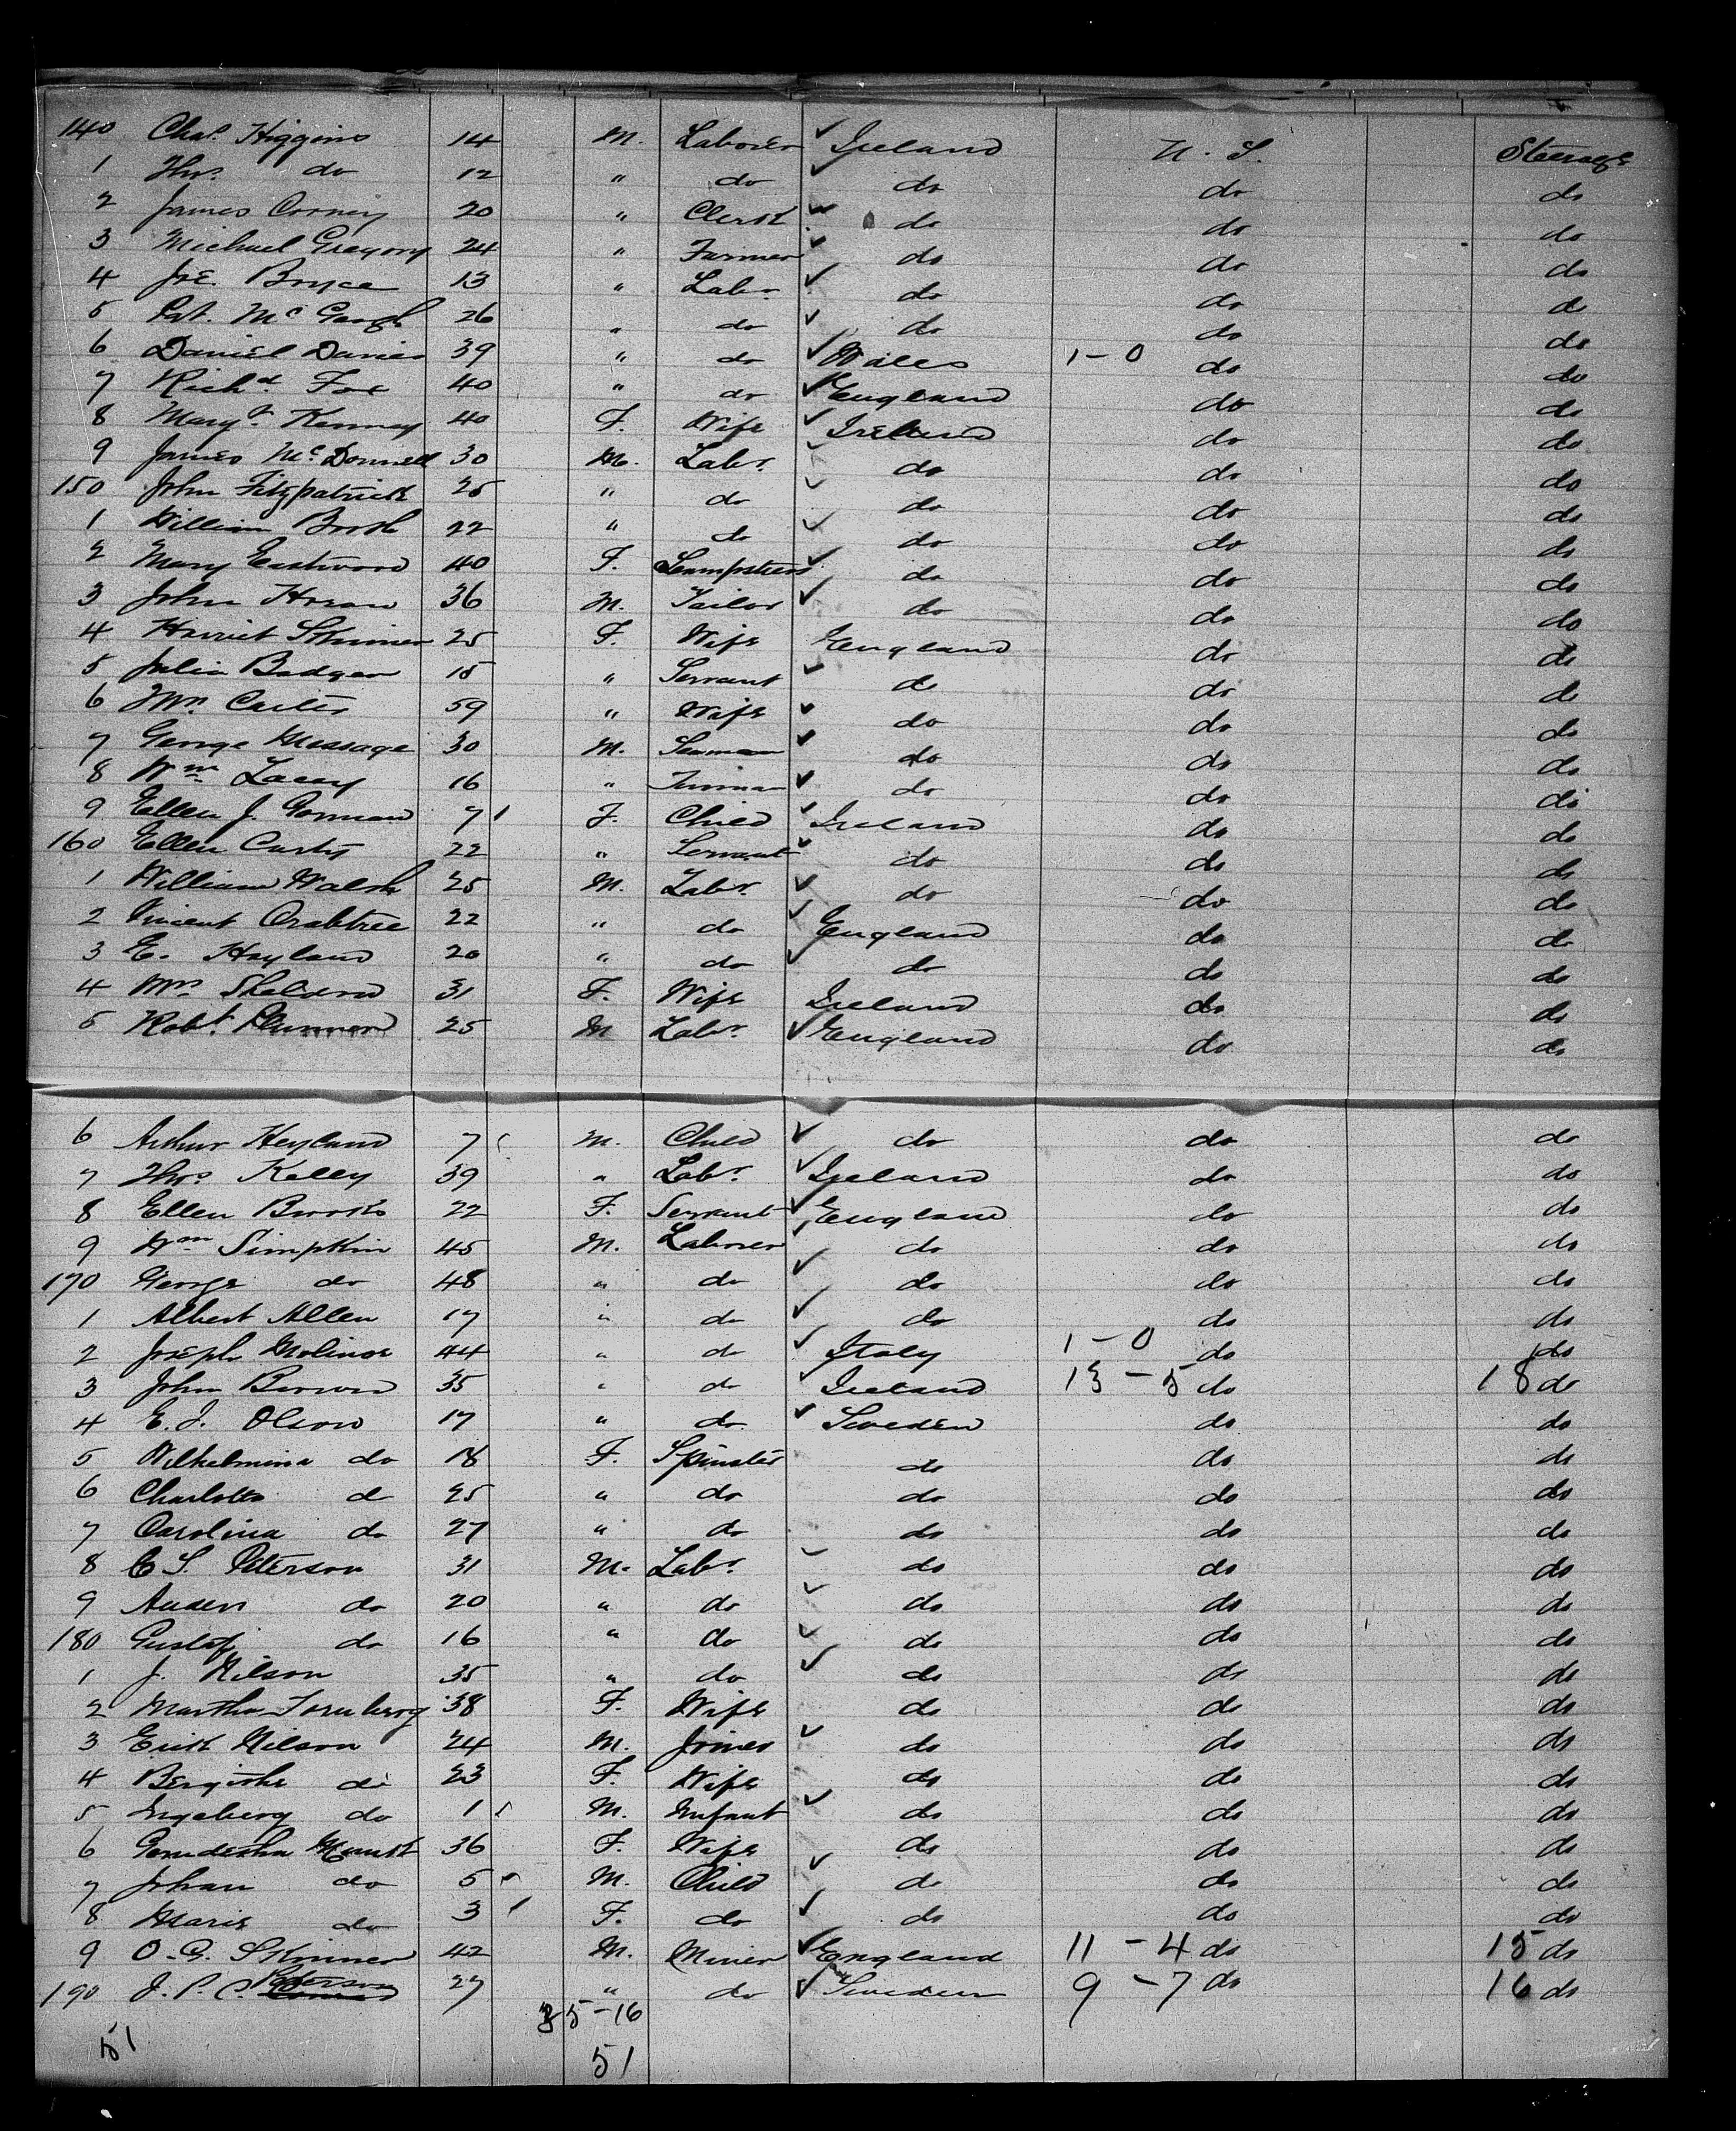 140 Chas. Higgins 14 M. Laborer ✓ Ireland U. S. Steerage
1 Thos. do 12 " do ✓ do do do
2 James Corney 20 " Clerk ✓ do do do
3 Michael Gregory 24 " Farmer ✓ do do do
4 Joe. Boyce 13 " Labr. ✓ do do do
5 Pat. McGough 26 " do ✓ do do do
6 Daniel Davies 39 " do ✓ Wales 1-0 do do
7 Richd. Fox 40 " do ✓ England do do
8 Margt. Kenney 40 F. Wife ✓ Ireland do do
9 James McDonnell 30 M. Labr. ✓ do do do
150 John Fitzpatrick 25 " do ✓ do do do
1 William Booth 22 " do ✓ do do do
2 Mary Eastwood 40 F. Seampstress ✓ do do do
3 John Horan 36 M. Tailor ✓ do do do
4 Harriet Skinner 25 F. Wife England do do
5 Julia Badger 15 " Servant ✓ do do do
6 Mrs. Carter 59 " Wife ✓ do do do
7 George Message 30 M. Seaman ✓ do do do
8 Wm. Lacey 16 " ✓ do do do
9 Ellen J. Gorman 7 F. Child ✓ Ireland do do
160 Ellen Curtis 22 " Servant ✓ do do do
1 William Walsh 25 M. Labr. ✓ do do do
2 Vincent Crabtree 22 " do ✓ England do do
3 E. Hayland 20 " do ✓ do do do
4 Mrs. Sheldon 31 F. Wife Ireland do do
5 Robt. 25 M Labr. ✓ England do do
6 Arthur Heyland 7 M. Child ✓ do do do
7 Thos. Kelly 39 " Labr. ✓ Ireland do do
8 Ellen Brooks 22 F. Servant ✓ England do do
9 Wm. Simpkin 45 M. Laborer ✓ do do do
170 George do 48 " do ✓ do do do
1 Albert Allen 17 " do ✓ do do do
2 Joseph Molinor 44 " do ✓ Italy 1-0 do do
3 John Brown 35 " do ✓ Ireland 13-5 do 18 do
4 E. J. Olson 17 " do ✓ Sweden do do
5 Wilhelmina do 18 F. Spinster do do do
6 Charlotta do 25 " do do do do
7 Carolina do 27 " do do do do
8 C S. Peterson 31 M. Labr. ✓ do do do
9 Anders do 20 " do ✓ do do do
180 Gustaf do 16 " do ✓ do do do
1 J. Nilson 35 " do ✓ do do do
2 Martha Tornberg 38 F. Wife do do do
3 Erick Nilson 24 M. Joiner ✓ do do do
4 do 23 F. Wife do do do
5 Ingeberg do 1 M. Infant ✓ do do do
6 36 F. Wife do do do
7 Johan do 5 M. Child ✓ do do do
8 Maria do 3 F. do ✓ do do do
9 O. G. Skinner 42 M. Miner ✓ England 11-4 do 15 do
190 J. P. C. Peterson 27 " do ✓ Sweden 9-7 do 16 do
35-16
51 51